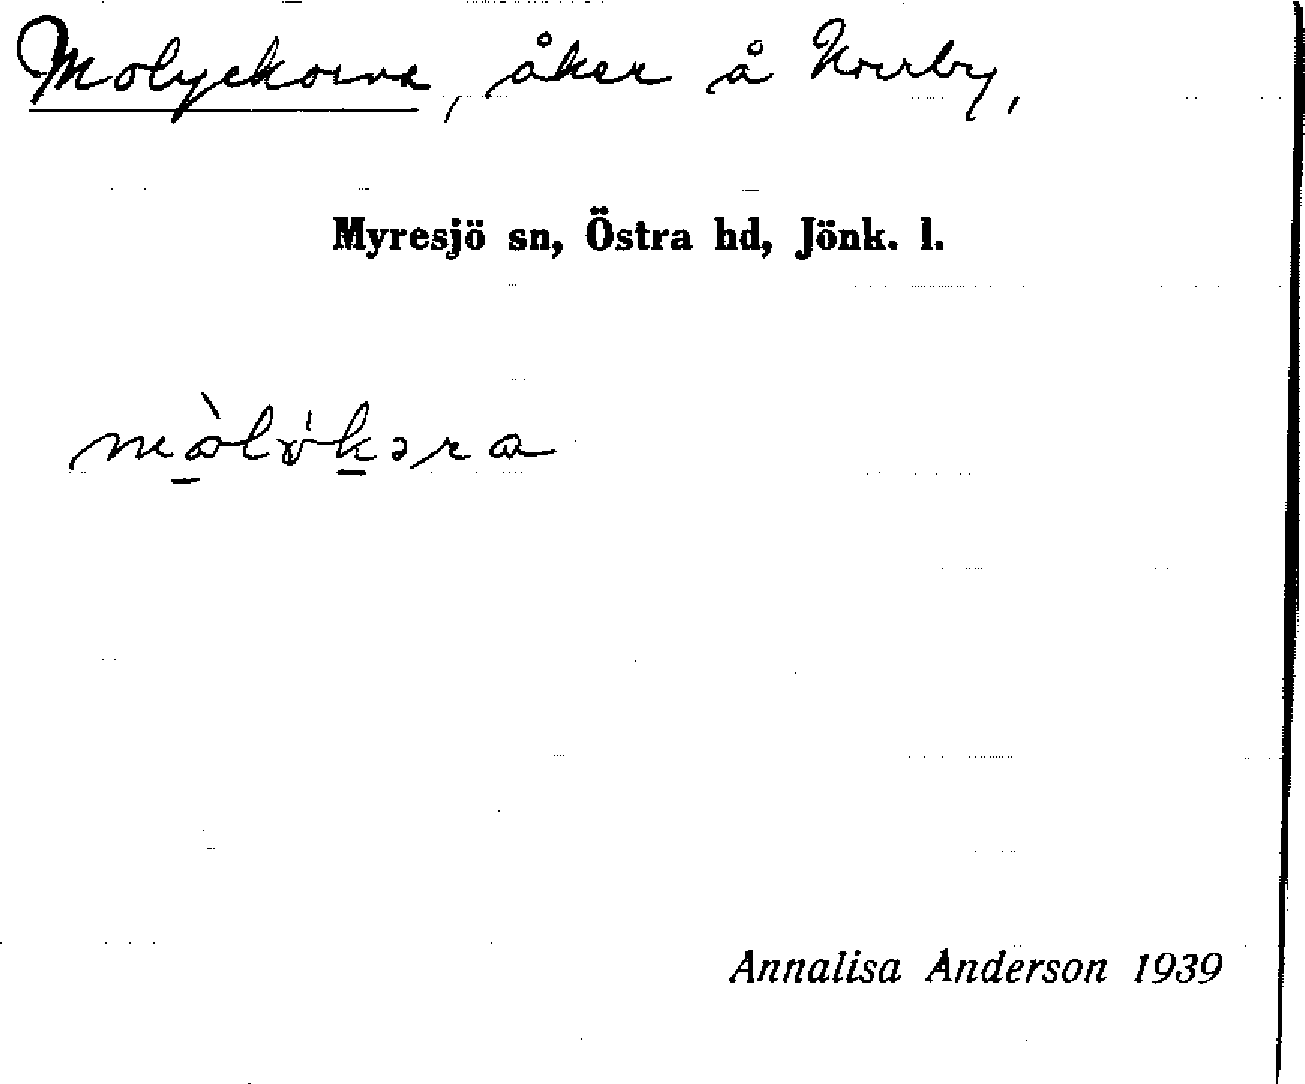 Molyckorna, åker å Norrby,
Myresjö sn, Östra hd, Jönk. l.
Annalisa Anderson 1939